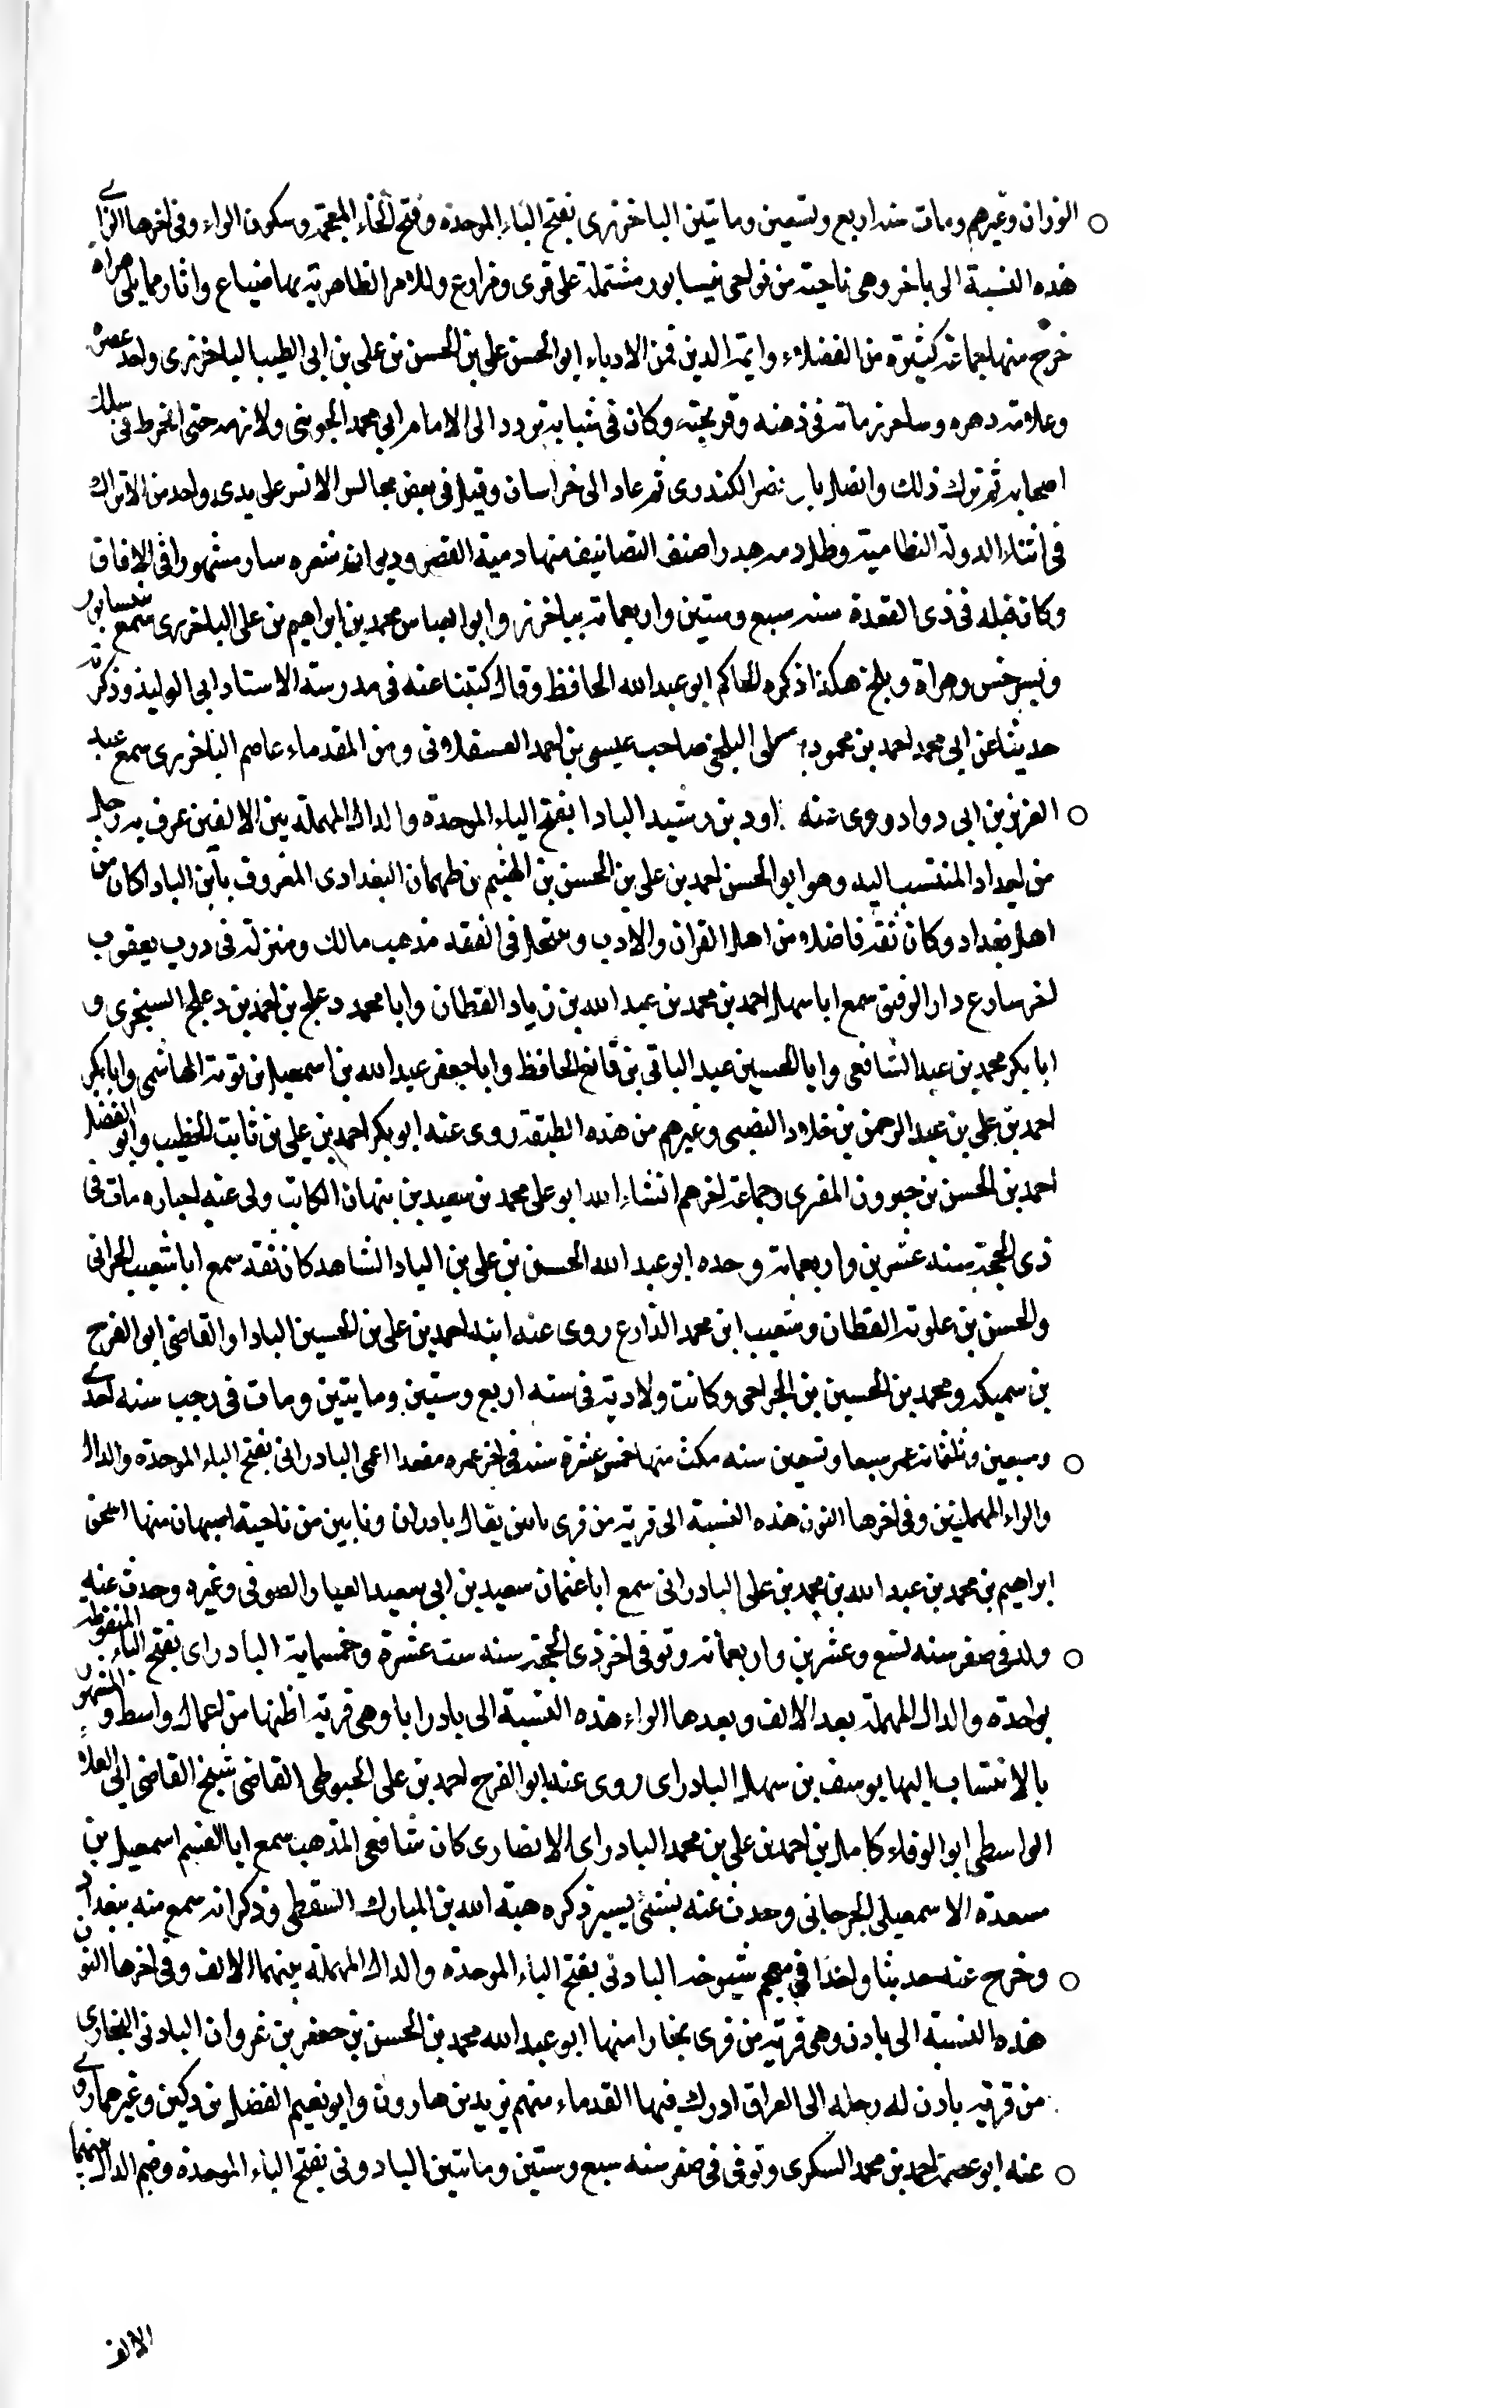 الوزان وغيرهم ومات سنه اربع وتسعين وماتين الباخرزى بفتح الباء الموحدة وفتح الخاء المعجمة وسكون الراء وفى اخرها الزاے
هذه النسبة الى باخرز وهى ناحيته من نواحى نيسابور مشتملة على قرى ومزارع وللامر الطاهريه بها ضياع واثار ممايلى هراه
خرج منها جماعه كثيرة من الفضلاء وايمة الدين فمن الادباء ابو الحسن على بن الحسن بن على بن ابى الطيب الباخرزى واحد عصره
وعلامة دهره وساحر زمانه فى ذهنه وقريحته وكان فى شبابه تردد الى الامام ابى محمد الجوينى ولازمه حتى انخرط فى سلك
اصحابه ثم ترك ذلك واتصل بابى نصر الكندرى ثم عاد الى خراسان وقيل فى بعض مجالس الانس على يدى واحد من الاتراك
فى اثناء الدولة النظامية وطل دمه هدرا صنف التصانيف منها دمية القصر وديوان شعره سار مشهورا فى الافاق
وكان قتله فى ذى القعدة سنه سبع وستين واربعمائه بباخرز وابو العباس محمد بن ابراهيم بن على الباخرزى سمع بنيسابور
وبسرخس وهراة وبلخ هكذا ذكره الحاكم ابو عبد الله الحافظ وقال كتبنا عنه فى مدرسة الاستاد ابى الوليد وذكر له
حديثا عن ابى محمد احمد بن محمود البلخى صاحب عيسى بن احمد العسقلانى ومن القدماء عاصم الباخرزى سمع عبد
العزيز بن ابى دواد روى عنه داود بن رشيد البادا بفتح الباء الموحدة والدال المهملة بين الالفين عرف به رجل
من اجداد المنتسب اليه وهو ابو الحسن احمد بن على بن الحسن بن الهيثم بن طهمان البغدادى المعروف بابن البادا كان من
اهل بغداد وكان ثقة فاضلا من اهل القران والادب وينتحل فى الفقه مذهب مالك ومنزله فى درب يعقوب
اخر شارع دار الرقيق سمع ابا سهل احمد بن محمد بن عبد الله بن زياد القطان وابا محمد دعلج بن احمد بن دعلج السجزى و
ابا بكر محمد بن عبد الشافعى وابا الحسين عبد الباقى بن قانع الحافظ وابا جعفر عبد الله بن اسمعيل بن توبه الهاشمى وابا بكر
احمد بن على بن عبد الرحمن بن خلاد النصيبى وغيرهم من هذه الطبقة روى عنه ابو بكر احمد بن على بن ثابت الخطيب وابو الفضل
احمد بن الحسن بن خيرون المقرى وجماعة اخرهم انشاء الله ابو على محمد بن سعيد بن نبهان الكاتب ولى عنه اجازه مات فى
ذى الحجة سنه عشرين واربعمائه وجده ابو عبد الله الحسين بن على بن البادا الشاهد كان ثقه سمع ابا شعيب الحرانى
والحسن بن علويه القطان وشعيب ابن محمد الذارع روى عنه ابنه احمد بن على بن الحسين البادا والقاضى ابو الفرج
بن سميكه ومحمد بن الحسين بن الجراحى وكانت ولادته فى سنه اربع وستين ومايتين ومات فى رجب سنه احدے
وسبعين وثلثمائه عمر سبعا وتسعين سنه مكث منها خمس عشرة سنه فى اخر عمره مقعدا اعمى البادرانى بفتح الباء الموحدة والدال
والراء المهملتين وفى اخرها النون هذه النسبة الى قريه من قرى نايين يقال بادران ونايين من ناحية اصبهان منها اسحق
ابراهيم بن محمد بن عبد الله بن محمد بن على البادرانى سمع ابا عثمان سعيد بن ابى سعيد العيار الصوفى وغيره وحدث عنه
ولد فى صفر سنه تسع وعشرين واربعمائه وتوفى اخر ذى الحجة سنه ست عشرة وخمسماية البادراى بفتح الباء المنقوطه
بواحدة والدال المهملة بعد الالف وبعدها الراء هذه النسبة الى بادرايا وهى قريه اظنها من اعمال واسط والمشهور
بالانتساب اليها يوسف بن سهل البادراى روى عنه ابو الفرج احمد بن على الخيوطى القاضى شيخ القاضى ابى العلاء
الواسطى ابو الوفاء كامل بن احمد بن على بن محمد البادراى الانصارى كان شافعى المذهب سمع ابا القسم اسمعيل بن
مسعدة الاسمعيلى الجرجانى وحدث عنه بشئ يسير ذكره هبة الله بن المبارك السقطى وذكر انه سمع منه ببغداد
وخرج عنه حديثا واحدا فى معجم شيوخه البادنى بفتح الباء الموحدة والدال المهملة بينهما الالف وفى اخرها النون
هذه النسبة الى بادن وهى قريه من قرى بخارا منها ابو عبد الله محمد بن الحسن بن جعفر بن غزوان البادنى البخارى
من قريه بادن له رحله الى العراق ادرك فيها القدماء منهم يزيد بن هارون وابو نعيم الفضل بن دكين وغيرهما روے
عنه ابو عصمة احمد بن محمد السكرى وتوفى فى صفر سنه سبع وستين وماتتين البادونى بفتح الباء الموحدة وضم الدال بينهما
الالف